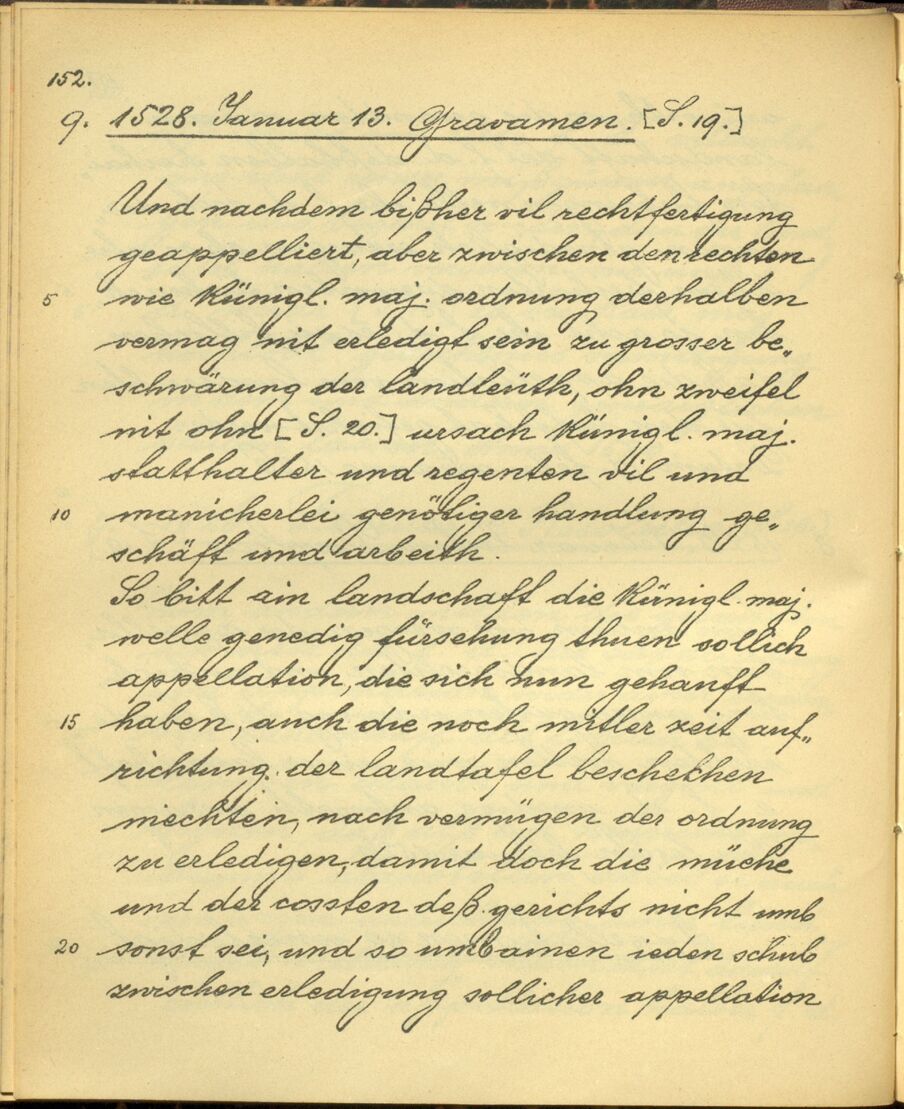 152.
9. 1528. Januar 13. Gravamen. [S. 19.]
Und nachdem bißher vil rechtfertigung
geappelliert, aber zwischen den rechten
5 wie Künigl. maj. ordnung derhalben
vermag nit erledigt sein zu grosser be„
schwärung der landleüth, ohn zweifel
nit ohn [S. 20.] ursach Künigl. maj.
statthalter und regenten vil und
10 manicherlei genötiger handlung ge„
schäft und arbeith.
So bitt ain landschaft die Künigl. maj.
welle genedig fürsehung thuen sollich
appellation, die sich nun gehauft
15 haben, auch die noch mitler zeit auf„
richtung der landtafel beschechen
mechten, nach vermügen der ordnung
zu erledigen, damit doch die müehe
und der cossten deß gerichts nicht umb
20 sonst sei, und so umb ainen ieden schub
zwischen erledigung sollicher appellation